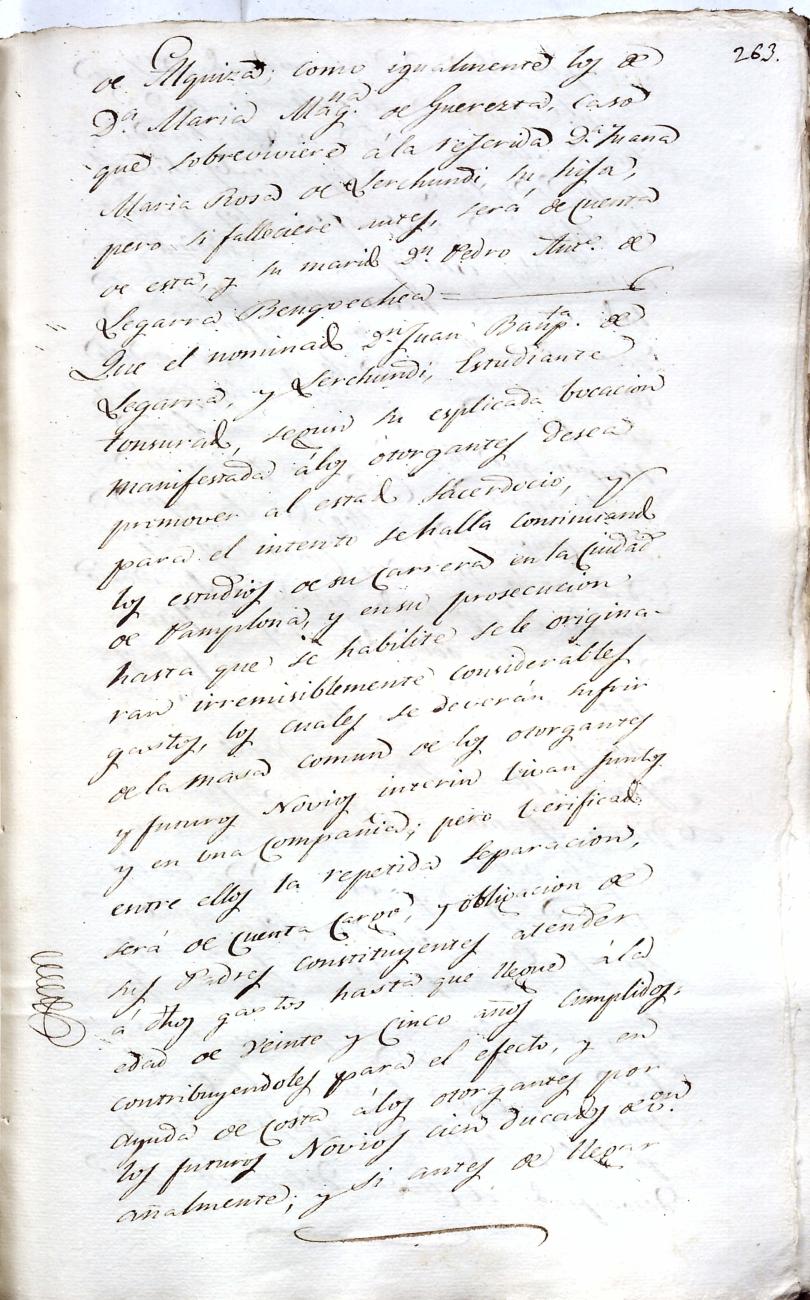 263.
de Alquiza; como igualmente los de
Dª. Maria Magna. de Guerezta, caso
que sobreviviere á la referida Dª. Juana
Maria Rosa de Lerchundi, su hija,
pero si falleciere antes, será de cuenta
de esta, y su marido Dn. Pedro Antº. de
Legarra Bengoechea =
Que el nominado Dn. Juan Bauptª. de
Legarra, y Lerchundi, Estudiante
tonsurado, segun su esplicada bocacion
manifestada álos otorgantes desea
promover al estado sacerdocio, y
para el intento se halla continuando
los estudios de su carrera en la Ciudad
de Pamplona, y en su prosecucion
hasta que se habilite sele origina-
ran irremisiblemente considerables
gastos, los cuales se deverán sufrir
de la masa comun de los otorgantes
y futuros Novios interin vivan juntos
y en una compañia; pero verificado
entre ellos la repetida separacion,
será de cuenta cargo, y obligacion de
sus Padres constituyentes atender
á dhos gastos hasta que llegue á la
edad de veinte y cinco años cumplidos,
contribuyendoles para el efecto, y en
ayuda de costa álos otorgantes por
los futuros Novios cien ducados de von.
añalmente; y si antes de llegar